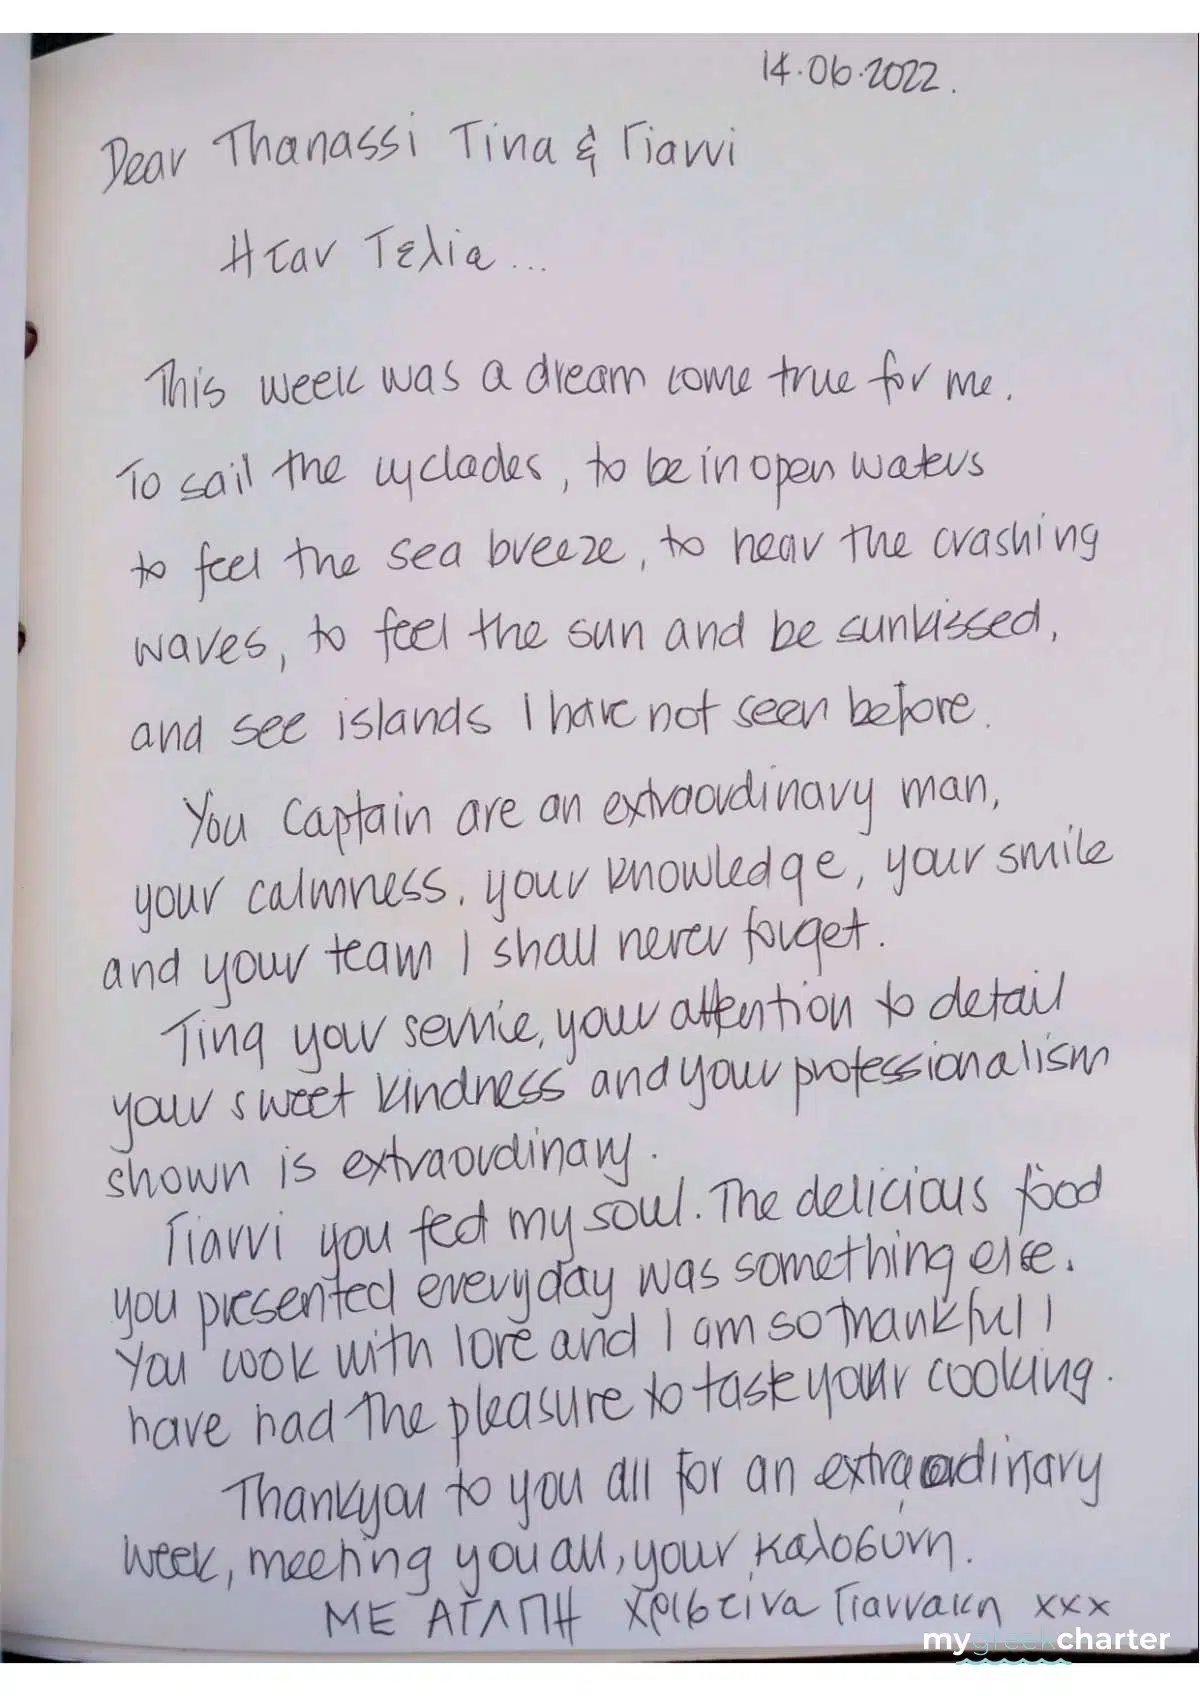 14.06.2022.
Dear Thanassi Tina & Γιαννι
Ηταν Τελια...
This week was a dream come true for me.
To sail the cyclades, to be in open waters
to feel the sea breeze, to hear the crashing
waves, to feel the sun and be sunkissed,
and see islands I have not seen before.
You Captain are an extraordinary man,
your calmness, your knowledge, your smile
and your team I shall never forget.
Tina your service, your attention to detail
your sweet kindness and your professionalism
shown is extraordinary.
Γιαννι you fed my soul. The delicious food
you presented everyday was something else.
You cook with love and I am so thankful I
have had the pleasure to taste your cooking.
Thankyou to you all for an extraordinary
week, meeting you all, your καλοσύνη.
ΜΕ ΑΓΑΠΗ Χριστίνα Γιαννακη xxx
mygreekcharter